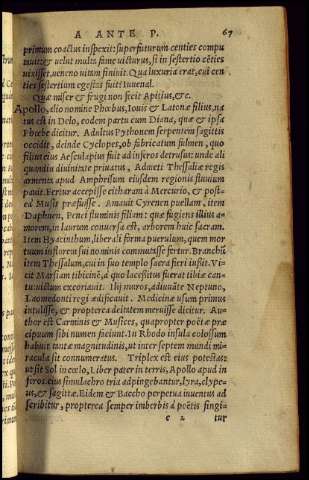 A ANTE P. 67
primum coactus inspexit: superfuturum centies compu
tauit: & uelut multa fame uicturus, si in sestertio cēties
uixisset, ueneno uitam finiuit. Qua luxuria erat, cui cen
ties sestertium egestas fuit? Iuuenal.
Quæ miser & frugi non fecit Apitius, &c.
Apollo, alio nomine Phœbus, Iouis & Latonæ filius, na
tus est in Delo, eodem partu cum Diana, quæ & ipsa
Phœbe dicitur. Adultus Pythonem serpentem sagittis
occidit, deinde Cyclopes, ob fabricatum fulmen, quo
filius eius Aesculapius fuit ad inferos detrusus: unde ali
quandiu diuinitate priuatus, Admeti Thessaliæ regis
armenta apud Amphrisum eiusdem regionis fluuium
pauit. Fertur accepisse citharam à Mercurio, & post-
ea Musis præfuisse. Amauit Cyrenen puellam, item
Daphnen, Penei fluminis filiam: quæ fugiens illius a-
morem, in laurum conuersa est, arborem huic sacram.
Item Hyacinthum, liberali forma puerulum, quem mor
tuum in florem sui nominis commutasse fertur. Branchū
item Thessalum, cui in suo templo sacra fieri iussit. Vi-
cit Marsiam tibicinē, à quo lacessitus fuerat tibiæ can-
tu: uictum excoriauit. Ilij muros, adiuuāte Neptuno,
Laomedonti regi ædificauit. Medicinæ usum primus
intulisse, & propterea deitatem meruisse dicitur. Au-
thor est Carminis & Musices, quapropter poëtæ præ
cipuum sibi numen faciunt. In Rhodo insula colossum
habuit tantæ magnitudinis, ut inter septem mundi mi-
racula sit connumeratus. Triplex est eius potestas:
ut sit Sol in cœlo, Liber pater in terris, Apollo apud in
feros. eius simulachro tria adpingebantur, lyra, clype-
us, & sagittæ. Eidem & Baccho perpetua iuuentus ad
scribitur, propterea semper imberbis à poëtis fingi-
c 2 tur